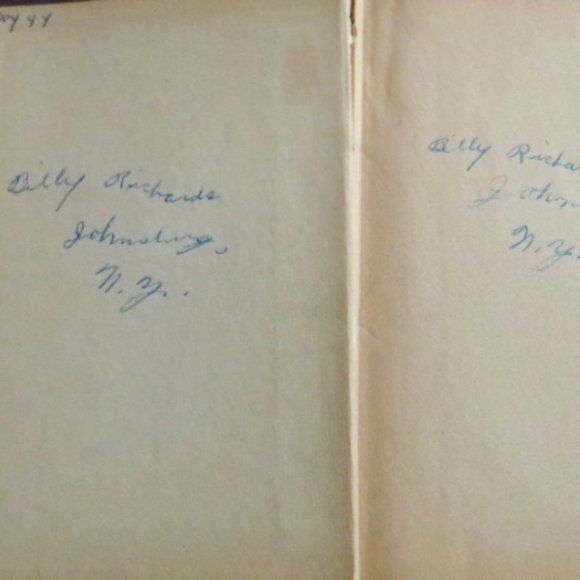 Billy Richards
Johnsburg,
N.Y.
Billy Richa
John
N.Y.